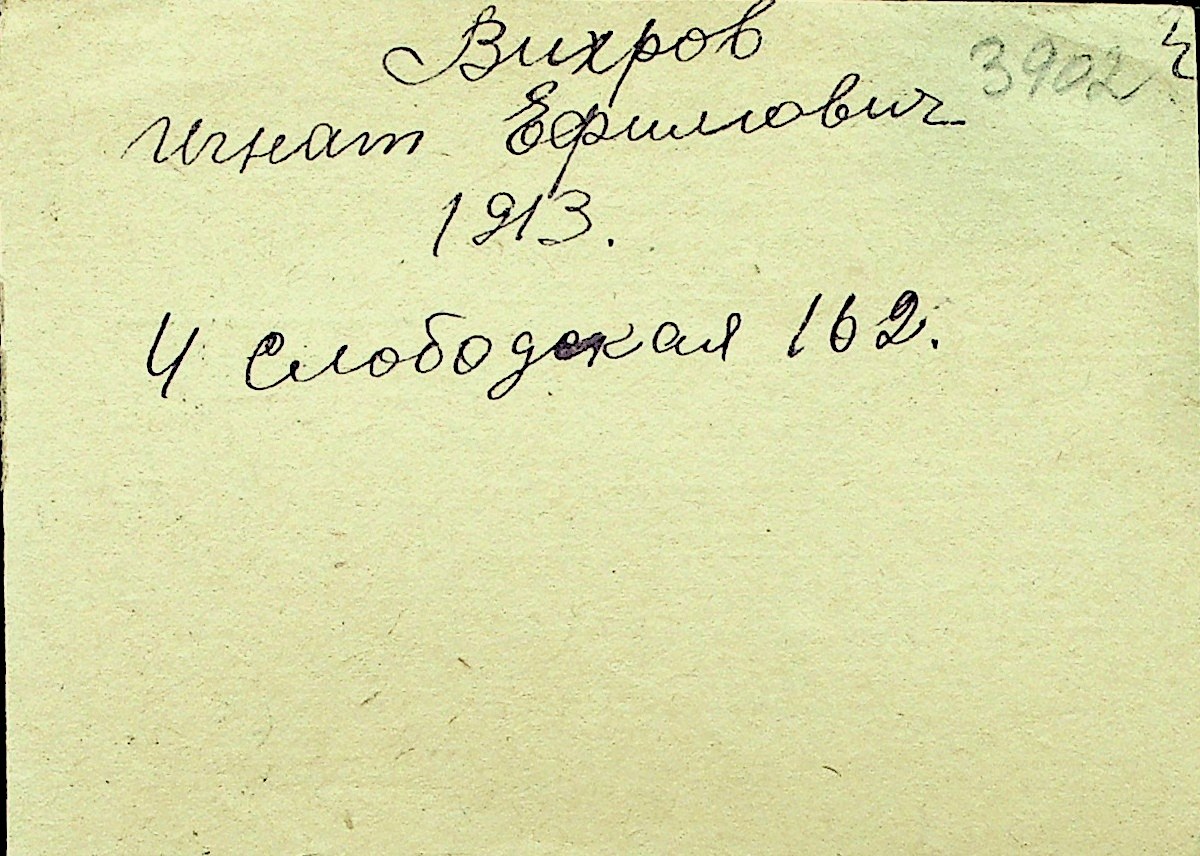 Вихров 3902
Игнат Ефимович
1913.
4 Слободская 162.